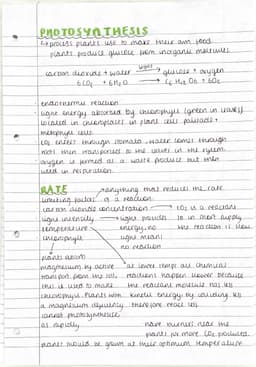 PHOTOSYNTHESIS
process plants use to make their own food
plants produce glucose from inorganic molecules
light
carbon dioxide + water → glucose + oxygen
6CO2 + 6H2O → C6H12O6 + 6O2
endothermic reaction
light energy absorbed by chlorophyll (green in leaves)
located in chloroplasts in plant cells palisade +
mesophyll cells
CO2 enters through stomata, water comes through
roots then transported to the cells in the xylem
oxygen is formed as a waste produce but then
used in respiration.
RATE
anything that reduces the rate
limiting factors of a reaction
carbon dioxide concentration → CO2 is a reactant
light intensity → light provides so in short supply
temperature energy, no the reaction is slow
chlorophyll light means
no reaction
plants absorb
magnesium by active at lower temps all chemical
transport from the soil reactions happen slower because
this is used to make the reactant molecule has less
chlorophyll. Plants with kinetic energy so colliding less
a magnesium deficiency therefore react less
cannot photosynthesise
as rapidly have burners near the
plants for more CO2 produced.
plants should be grown at their optimum temperature